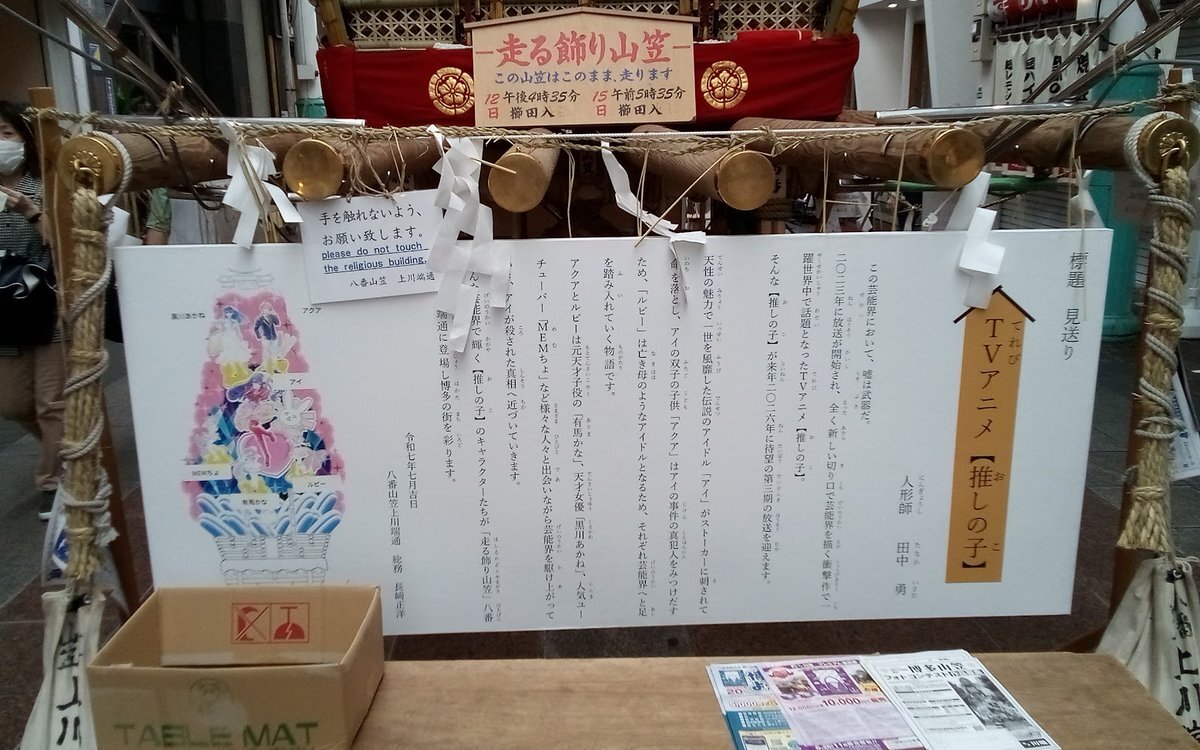 走る飾り山笠
この山笠はこのまま、走ります
12日 午後4時35分 櫛田入
15日 午前5時35分 櫛田入
手を触れないよう、
お願い致します。
please do not touch
the religious building.
八番山笠 上川端通
標題 見送り
TVアニメ【推しの子】
てれび
お こ
人形師 田中 勇
にんぎょうし たなか いさむ
この芸能界において、嘘は武器だ。
二〇二三年に放送が開始され、全く新しい切り口で芸能界を描く衝撃作で一
躍世界中で話題となったTVアニメ【推しの子】。
そんな【推しの子】が来年二〇二六年に待望の第三期の放送を迎えます。
天性の魅力で一世を風靡した伝説のアイドル「アイ」がストーカーに刺されて
命を落とし、アイの双子の子供「アクア」はアイの事件の真犯人をみつけだす
ため、「ルビー」は亡き母のようなアイドルとなるため、それぞれ芸能界へと足
を踏み入れていく物語です。
アクアとルビーは元天才子役の「有馬かな」、天才女優「黒川あかね」、人気ユー
チューバー「MEMちょ」など様々な人々と出会いながら芸能界を駆け上がって
アイが殺された真相へ近づいていきます。
芸能界で輝く【推しの子】のキャラクターたちが「走る飾り山笠」八番
端通に登場し博多の街を彩ります。
令和七年七月吉日
八番山笠上川端通 総務 長﨑正洋
黒川あかね
アクア
アイ
MEMちょ
ルビー
有馬かな
TABLE MAT
10,000
博多山笠
フォトコンテスト
上川
八番上川